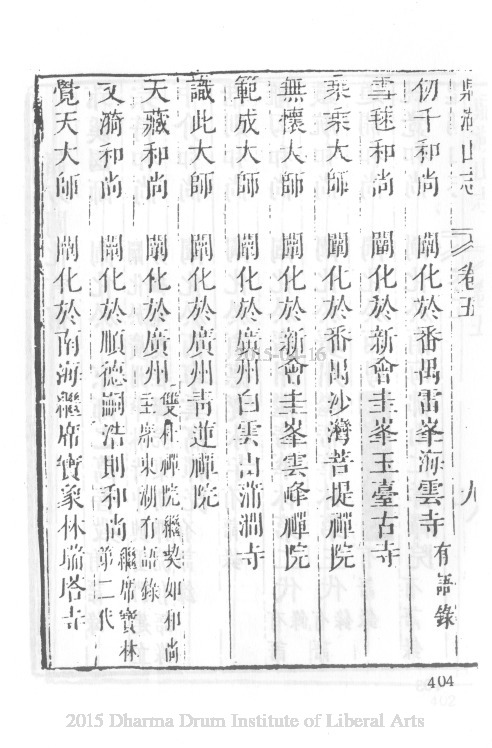 鼎湖山志 卷五 九
仞千和尚 闡化於番禺雷峯海雲寺 有語錄
雪毬和尚 闡化於新會圭峯玉臺古寺
乘乘大師 闡化於番禺沙灣菩提禪院
無懷大師 闡化於新會圭峯雲峰禪院
範成大師 闡化於廣州白雲山蒲澗寺
識此大師 闡化於廣州青蓮禪院
天藏和尚 闡化於廣州 雙桂禪院繼契如和尚
主席東湖有語錄
文漪和尚 闡化於順德嗣浩則和尚 繼席寶林
第二代
覺天大師 闡化於南海繼席寶象林瑞塔寺
404
2015 Dharma Drum Institute of Liberal Arts